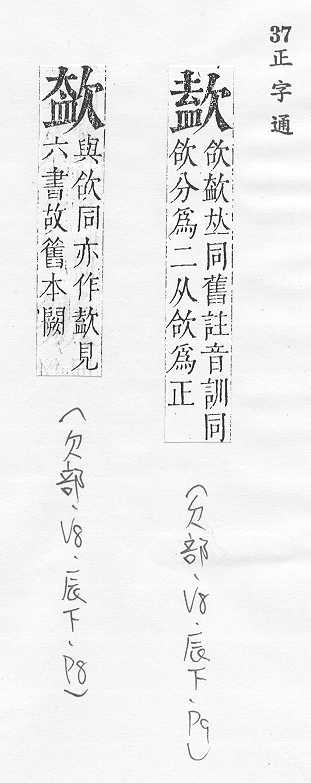 37
正字通
欱𠀤同舊註音訓同
欱分爲二从欱爲正
(欠部、V8、辰下、P9)
與欱同亦作見
六書故舊本闕
(欠部、V8、辰下、P8)